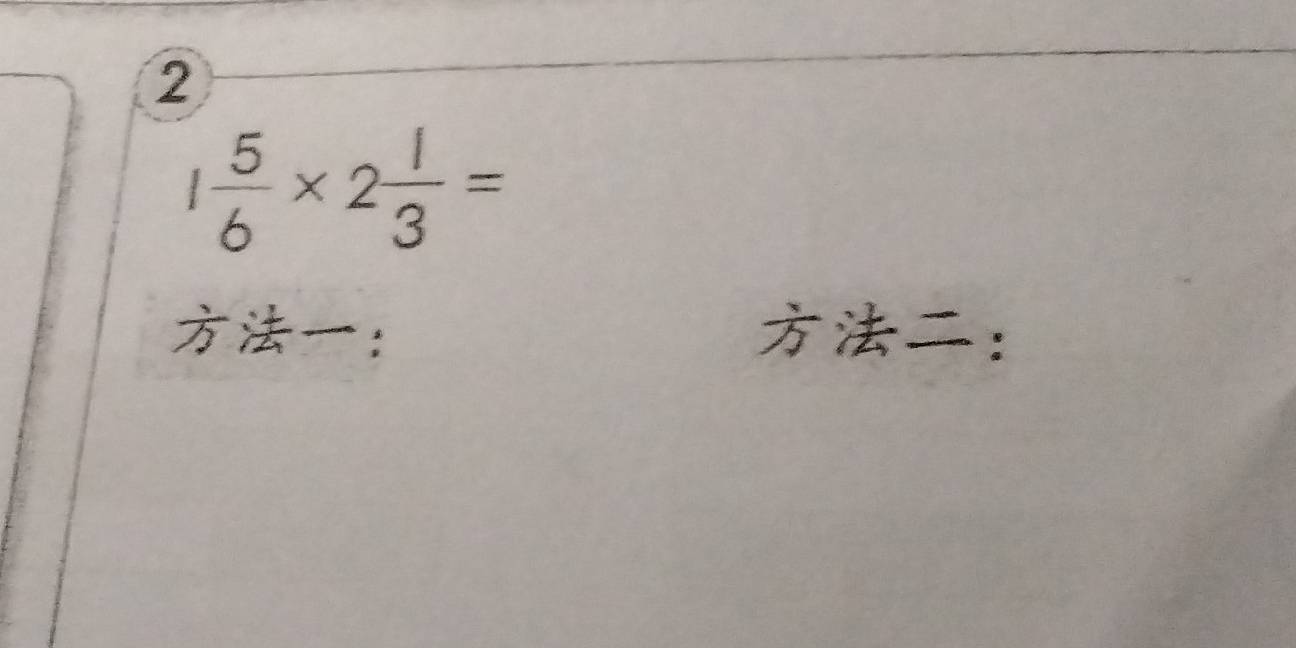 2
1 5/6 × 2 1/3 =
方法一： 方法二：